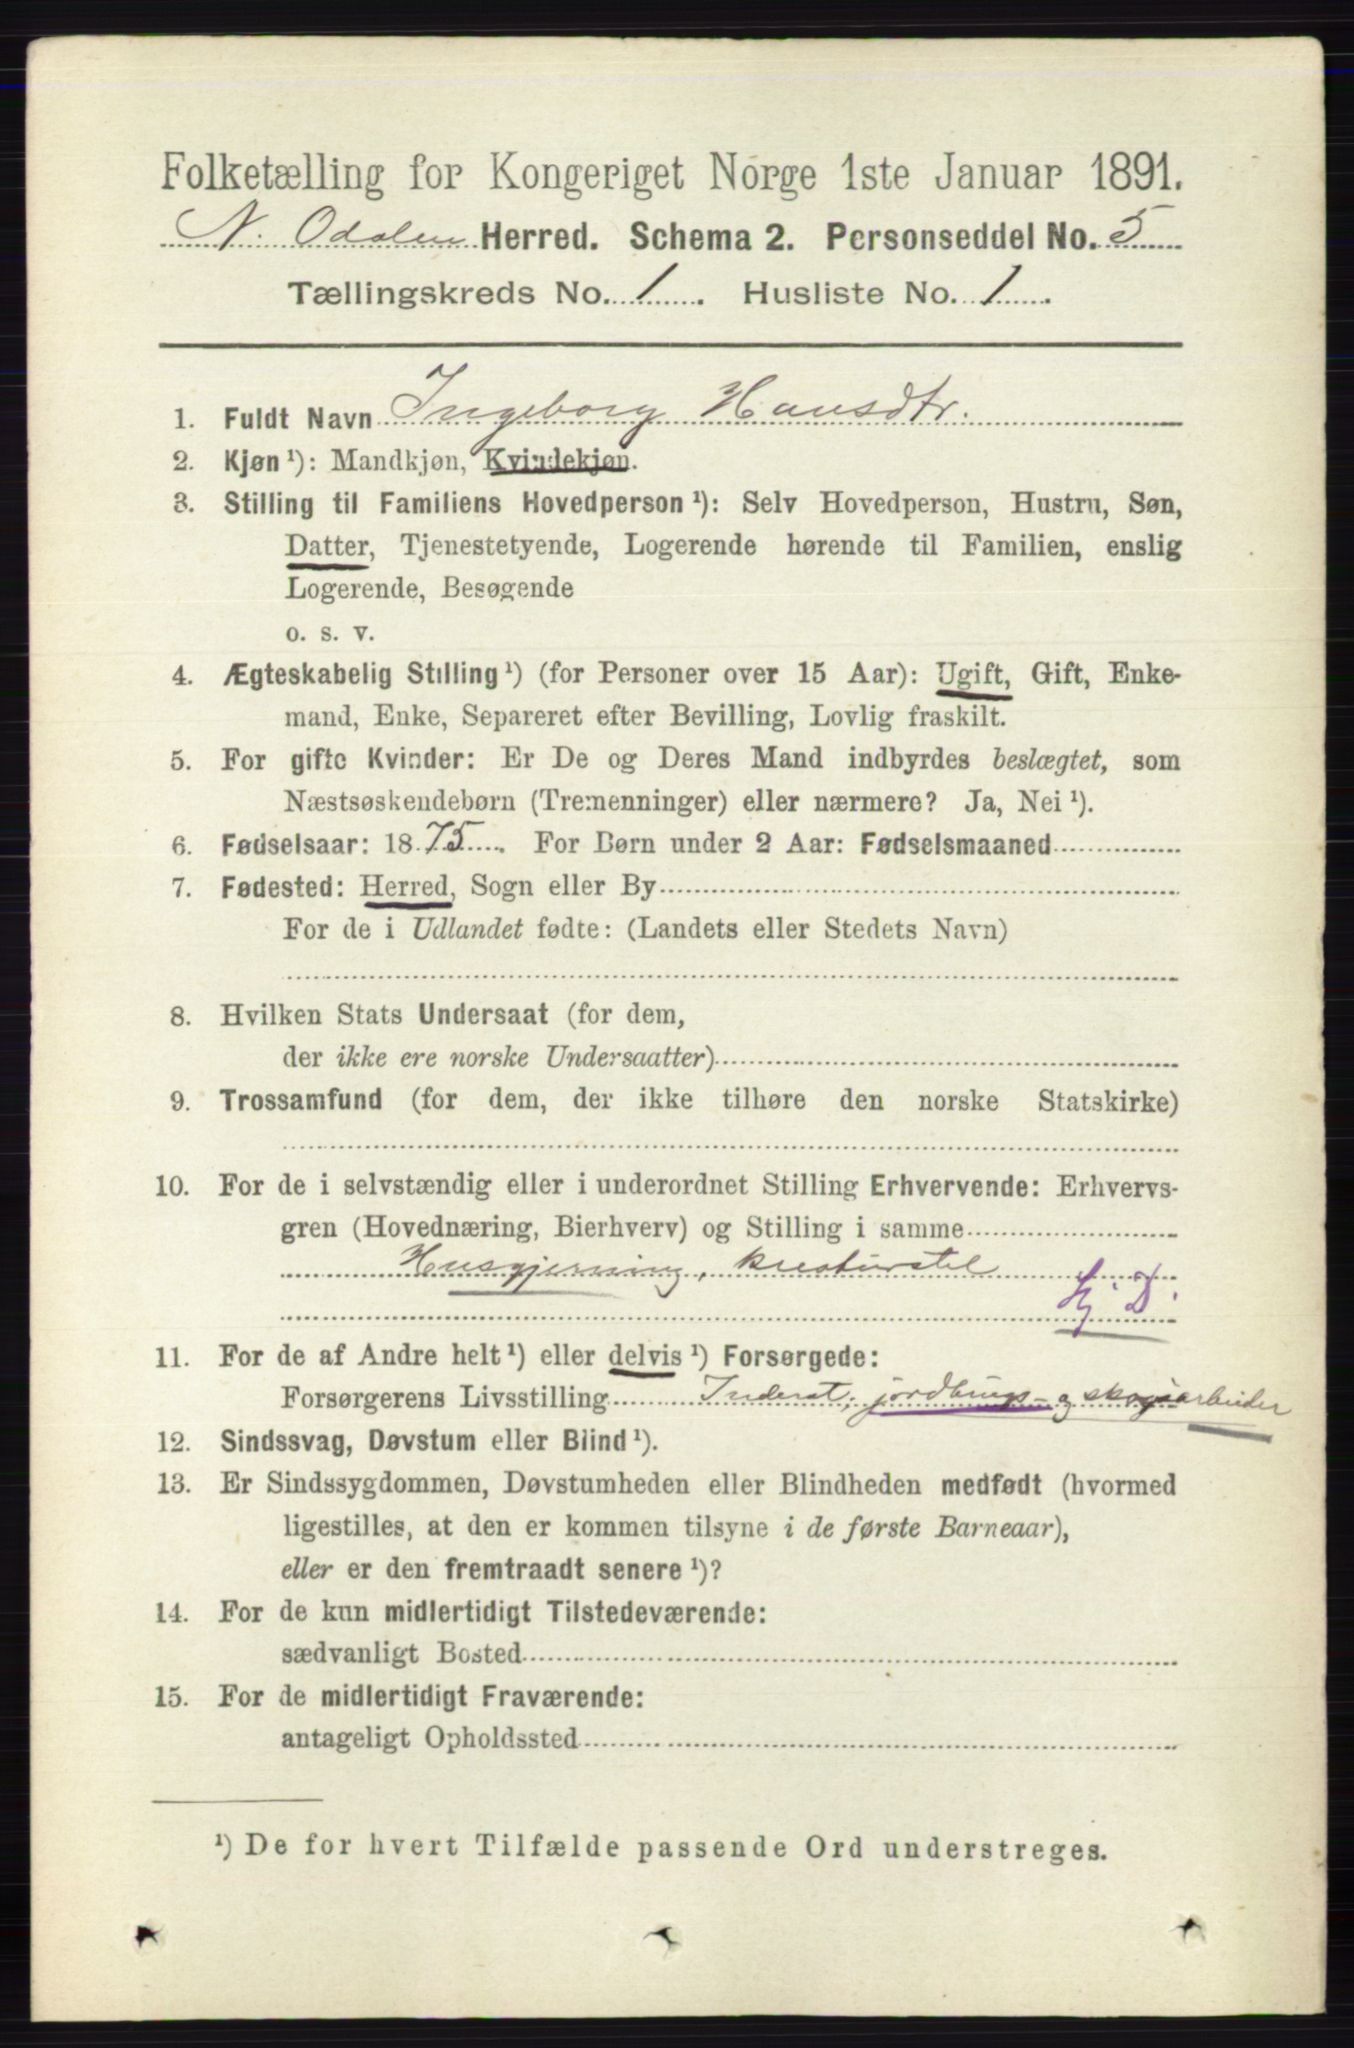 Folketælling for Kongeriget Norge 1ste Januar 1891.
N. Odalen Herred. Schema 2. Personseddel No. 5
Tællingskreds No. 1. Husliste No. 1.
1. Fuldt Navn Ingeborg Hansdtr.
2. Kjøn ¹): Mandkjøn, Kvindekjøn.
3. Stilling til Familiens Hovedperson ¹): Selv Hovedperson, Hustru, Søn,
Datter, Tjenestetyende, Logerende hørende til Familien, enslig
Logerende, Besøgende
o. s. v.
4. Ægteskabelig Stilling ¹) (for Personer over 15 Aar): Ugift, Gift, Enke-
mand, Enke, Separeret efter Bevilling, Lovlig fraskilt.
5. For gifte Kvinder: Er De og Deres Mand indbyrdes beslægtet, som
Næstsøskendebørn (Tremenninger) eller nærmere? Ja, Nei ¹).
6. Fødselsaar: 1875. For Børn under 2 Aar: Fødselsmaaned
7. Fødested: Herred, Sogn eller By
For de i Udlandet fødte: (Landets eller Stedets Navn)
8. Hvilken Stats Undersaat (for dem,
der ikke ere norske Undersaatter)
9. Trossamfund (for dem, der ikke tilhøre den norske Statskirke)
10. For de i selvstændig eller i underordnet Stilling Erhvervende: Erhvervs-
gren (Hovednæring, Bierhverv) og Stilling i samme
Husgjerning, kreaturstel
D
11. For de af Andre helt ¹) eller delvis ¹) Forsørgede:
Forsørgerens Livsstilling Inderst, jordbrugs- og skogsarbeider
12. Sindssvag, Døvstum eller Blind ¹).
13. Er Sindssygdommen, Døvstumheden eller Blindheden medfødt (hvormed
ligestilles, at den er kommen tilsyne i de første Barneaar),
eller er den fremtraadt senere ¹)?
14. For de kun midlertidigt Tilstedeværende:
sædvanligt Bosted
15. For de midlertidigt Fraværende:
antageligt Opholdssted
¹) De for hvert Tilfælde passende Ord understreges.